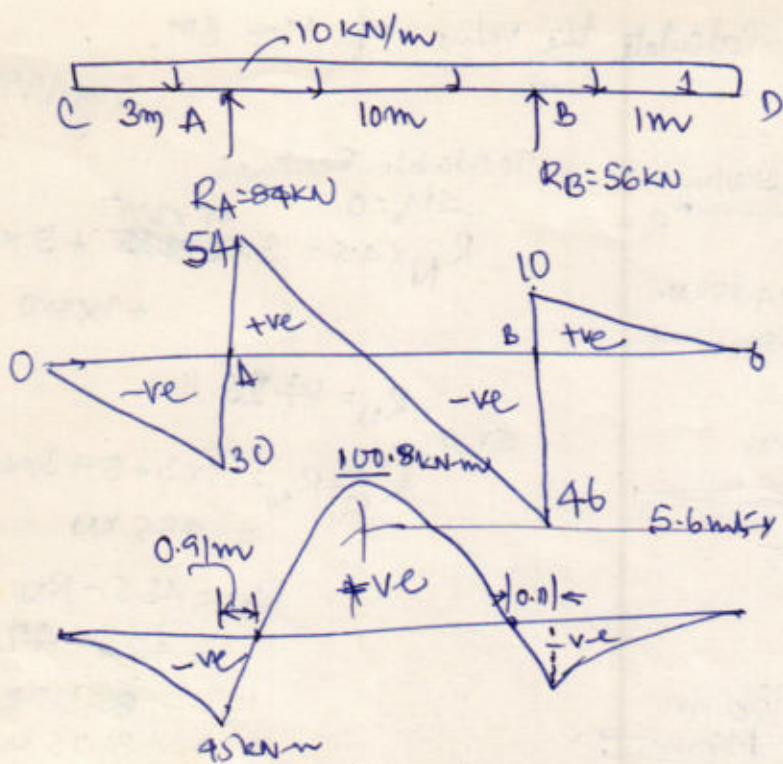 10 KN/m
C 3m A 10m B 1m D
RA=84KN RB=56KN
54 10
+ve B +ve
0 A 0
-ve -ve
30
100.8kN-m 46
5.6m
0.91m +ve 0.11
-ve -ve
45kN-m